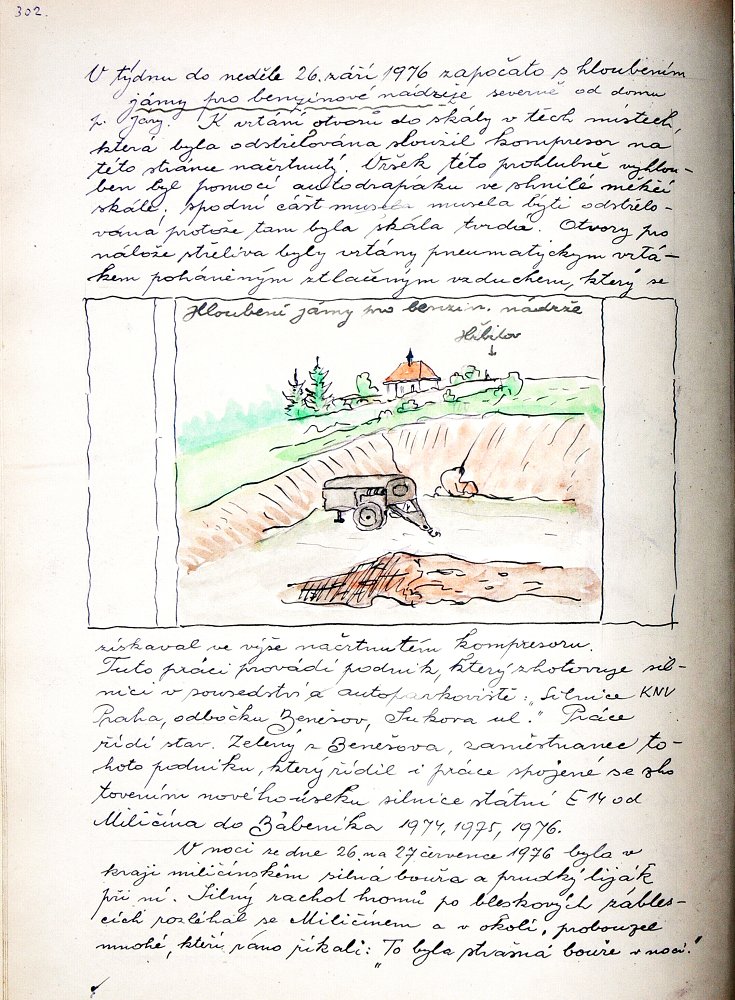 302.
V týdnu do neděle 26. září 1976 započato s hloubením
jámy pro benzinové nádrže severně od domu
p. Járy. K vrtání otvorů do skály v těch místech,
která byla odstřelována sloužil kompresor na
této stránce načrtnutý. Vršek této prohlubně vyhlou-
ben byl pomocí autodrapáku ve shnilé měkčí
skále, spodní část musela musela býti odstřelo-
vána protože tam byla skála tvrdá. Otvory pro
nálože střeliva byly vrtány pneumatickým vrtá-
kem poháněným ztlačeným vzduchem, který se
Hloubení jámy pro benzin. nádrže
Hřbitov
získával ve výše načrtnutém kompresoru.
Tuto práci provádí podnik, který zhotovuje sil-
nici v sousedství a autoparkoviště: "Silnice KNV
Praha, odbočku Benešov, Sukova ul." Práce
řídí stav. Zelený z Benešova, zaměstnanec to-
hoto podniku, který řídil i práce spojené se zho
tovením nového úseku silnice státní E 14 od
Miličína do Bábeníka 1974, 1975, 1976.
V noci ze dne 26. na 27 července 1976 byla v
kraji miličínském silná bouřa a prudký liják
při ní. Silný rachot hromů po bleskových zábles-
cích rozléhal se Miličínem a v okolí, probouzel
mnohé, kteří ráno říkali: "To byla strašná bouře v noci."